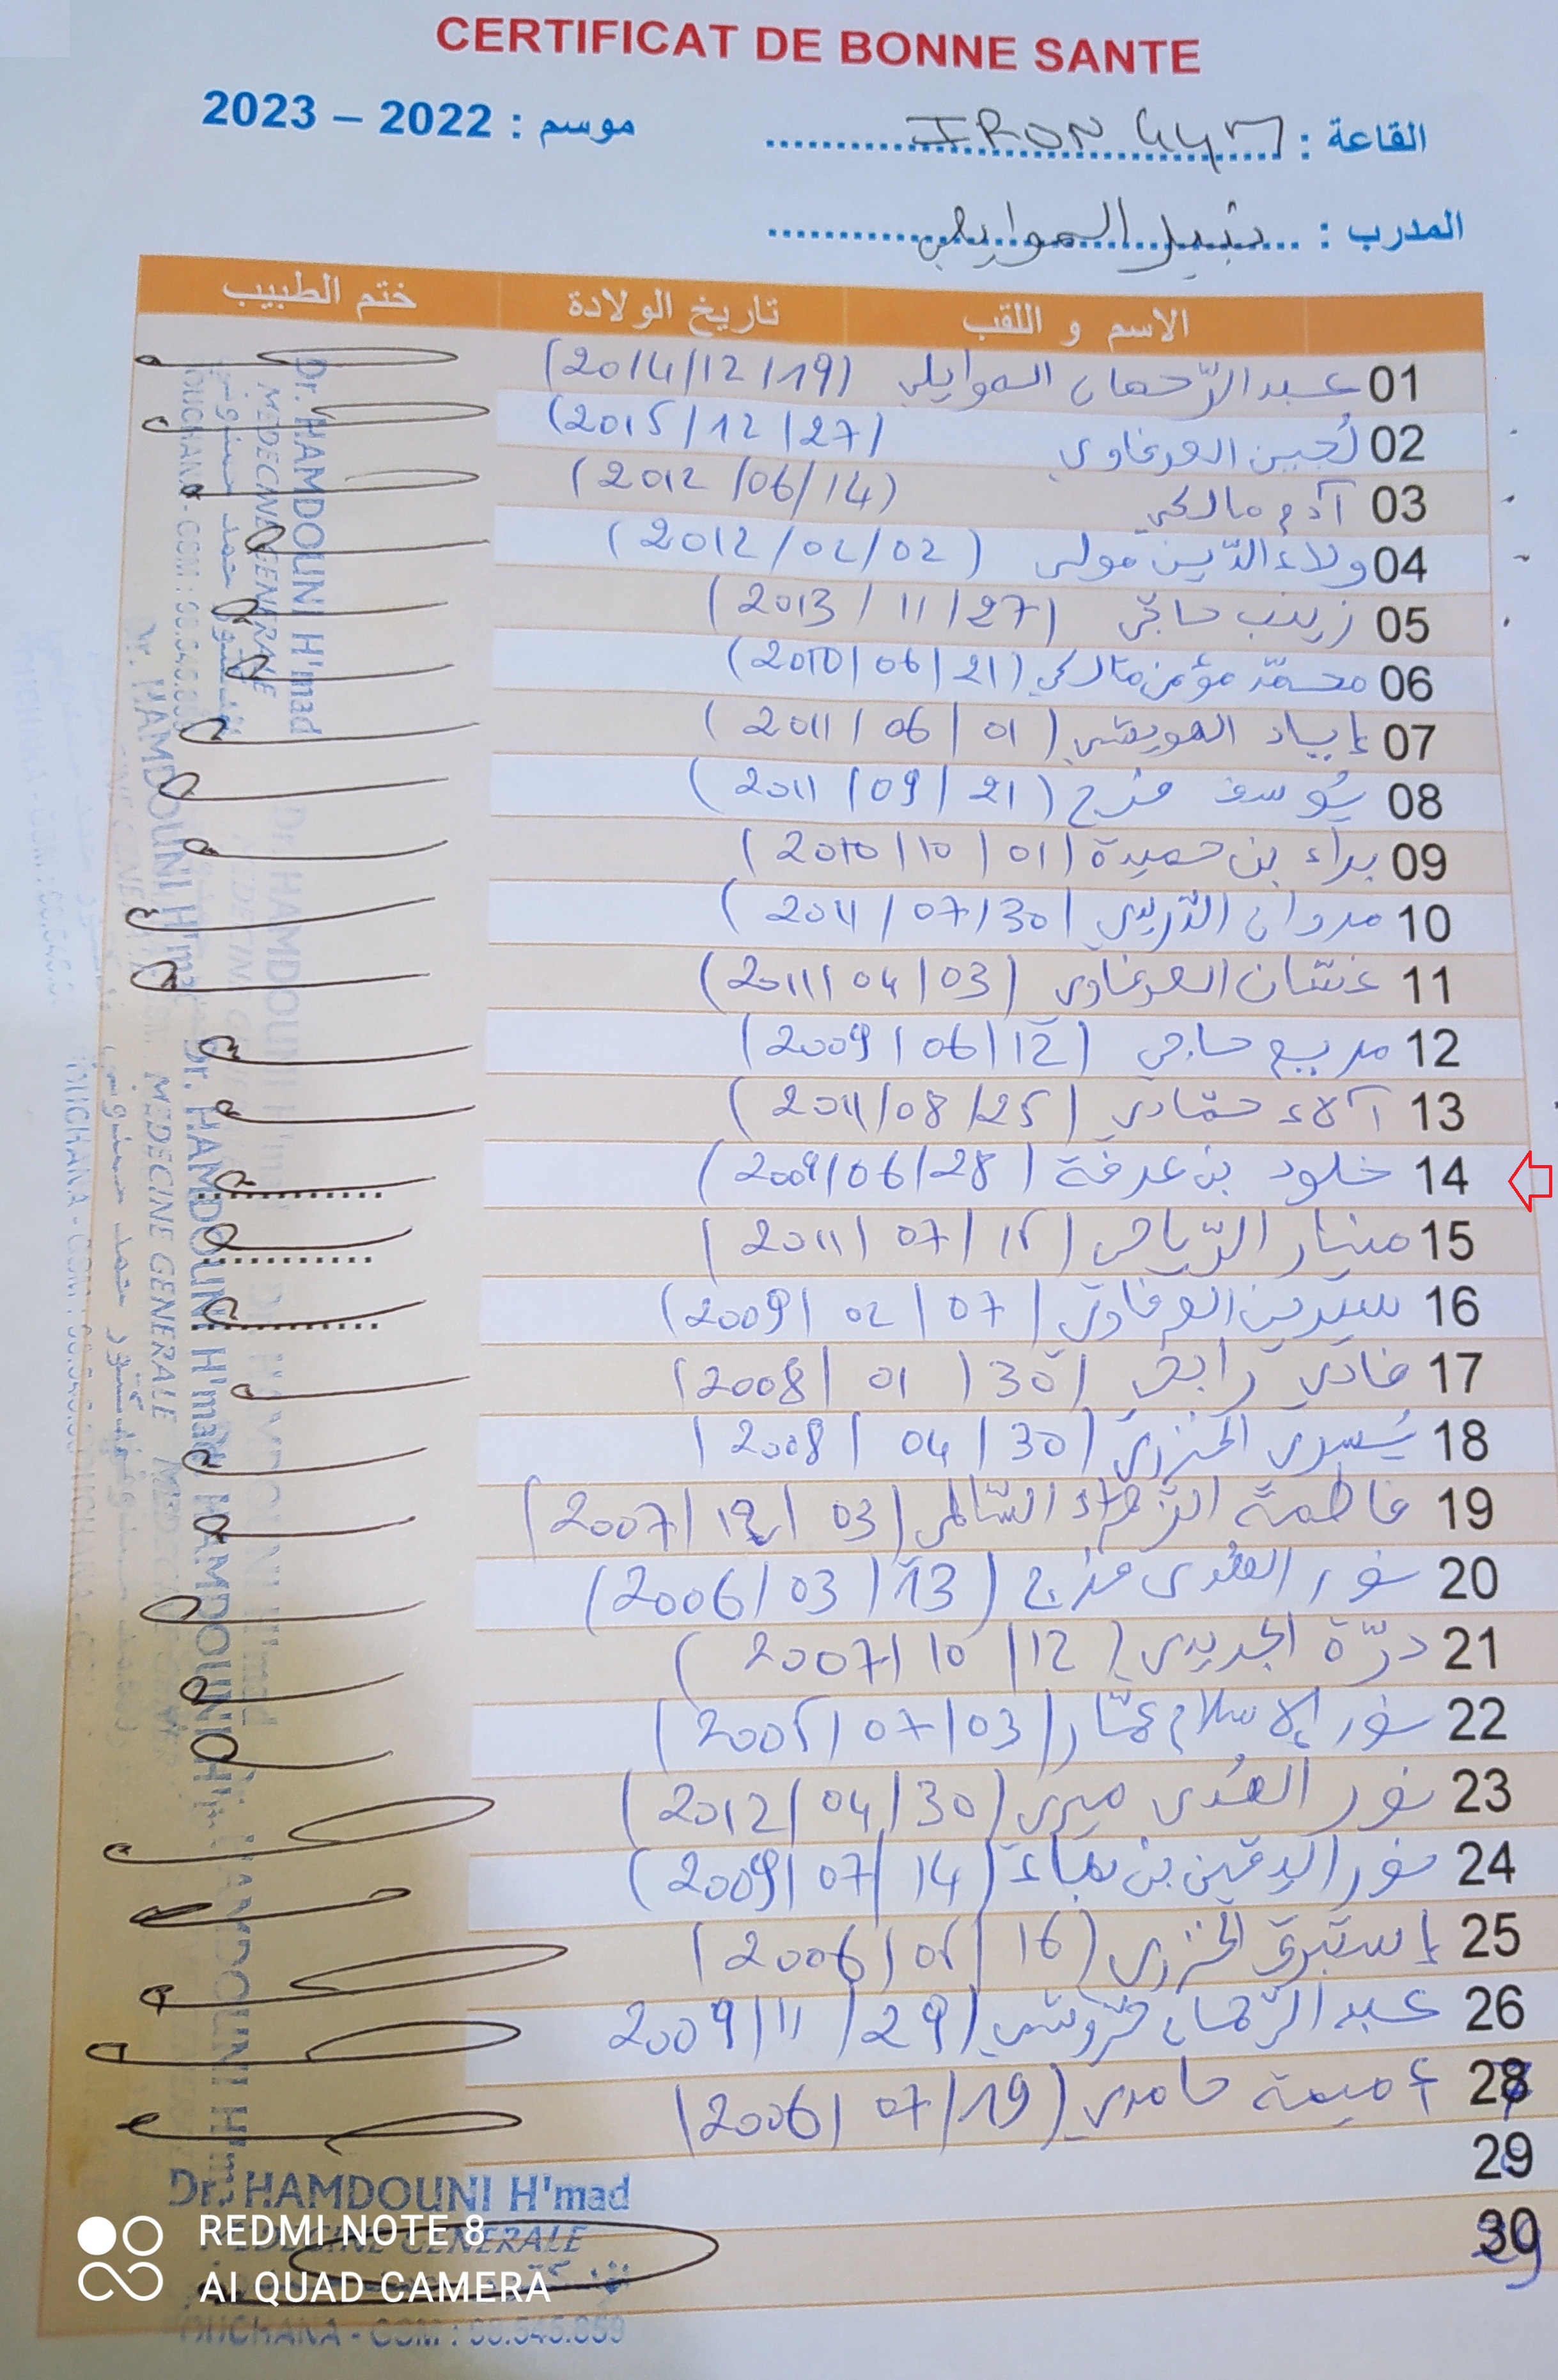 CERTIFICAT DE BONNE SANTE
القاعة : IRON GYM موسم : 2022 – 2023
المدرب : نبيل الموايلي
الاسم و اللقب تاريخ الولادة ختم الطبيب
01 عبد الرّحمان الموايلي (2014/12/19)
02 لُجين العرفاوي (2015/12/27)
03 آدم مالكي (2012/06/14)
04 ولاء الدّين مولى (2012/02/02)
05 زينب حاجّي (2013/11/27)
06 محمّد مؤمن مالكي (2010/06/21)
07 إياد العويشي (2011/06/01)
08 يُوسف فرج (2011/09/21)
09 براء بن حميدة (2010/10/01)
10 مروان الدّريدي (2011/07/30)
11 غسّان العرفاوي (2011/04/03)
12 مريم حاجي (2009/06/12)
13 آلاء حمّادي (2011/08/25)
14 خلود بن عرفة (2009/06/28)
15 منار الرّياحي (2011/07/15)
16 سيرين العرفاوي (2009/02/07)
17 فادي رابحي (2008/01/30)
18 يُسرى الخزري (2008/04/30)
19 فاطمة الزّهراء السّالمي (2007/12/03)
20 نور الهُدى فرج (2006/03/13)
21 درّة الجديدي (2007/10/12)
22 نور الإسلام عمّار (2005/07/03)
23 نور الهُدى ميري (2012/04/30)
24 نور اليقين بن (2009/07/14)
25 إستبرق الخزري (2006/05/16)
26 عبد الرّحمان (2009/11/29)
28 أميمة حامدي (2006/07/19)
29
30
Dr. HAMDOUNI H'mad
MEDECINE GENERALE
BOUCHANA - GSM : 98.545.859
REDMI NOTE 8
AI QUAD CAMERA